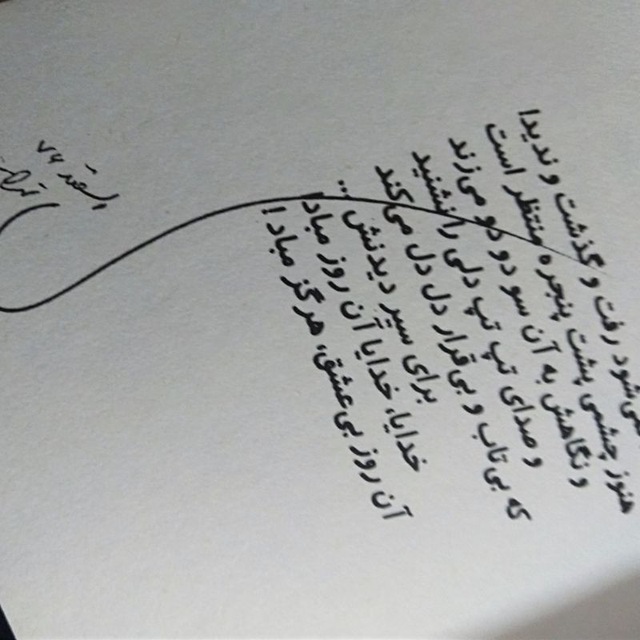 می‌شود رفت و گذشت و ندید!
هنوز چشمی پشت پنجره منتظر است
و نگاهش به آن سو دو دو می زند
و صدای تپ تپ دلی را بشنید
که بی تاب و بی قرار دل دل می کند
برای سیر دیدنش ...
خدایا، خدایا آن روز مباد!
آن روز بی عشق، هرگز مباد!
اسفند ۷۶
تهران